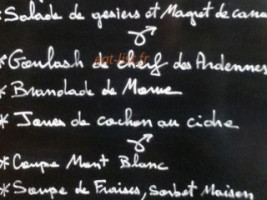 * Salade de gesiers et Magret de cana
* Goulash de chef des Ardennes
* Brandade de Morue
* Joues de cochon au cidre
* Coupe Mont Blanc
* Soupe de Fraises, Sorbet Maison